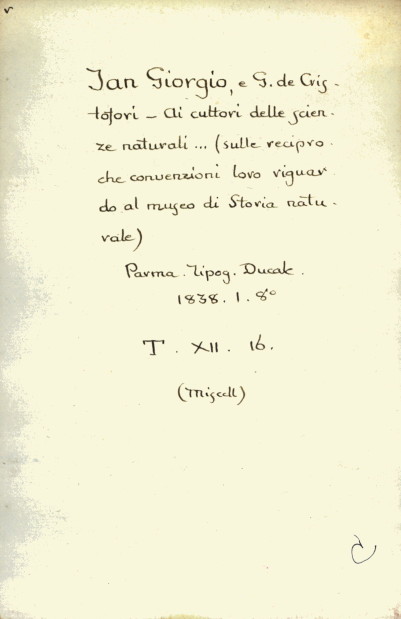 Jan Giorgio, e G. de Cris-
tofori - Ai cultori delle scien-
ze naturali ... (sulle recipro-
che convenzioni loro riguar
do al museo di Storia natu-
rale)
Parma. Tipog. Ducale.
1838. 1. 8°
T. XII. 16.
(Miscell)